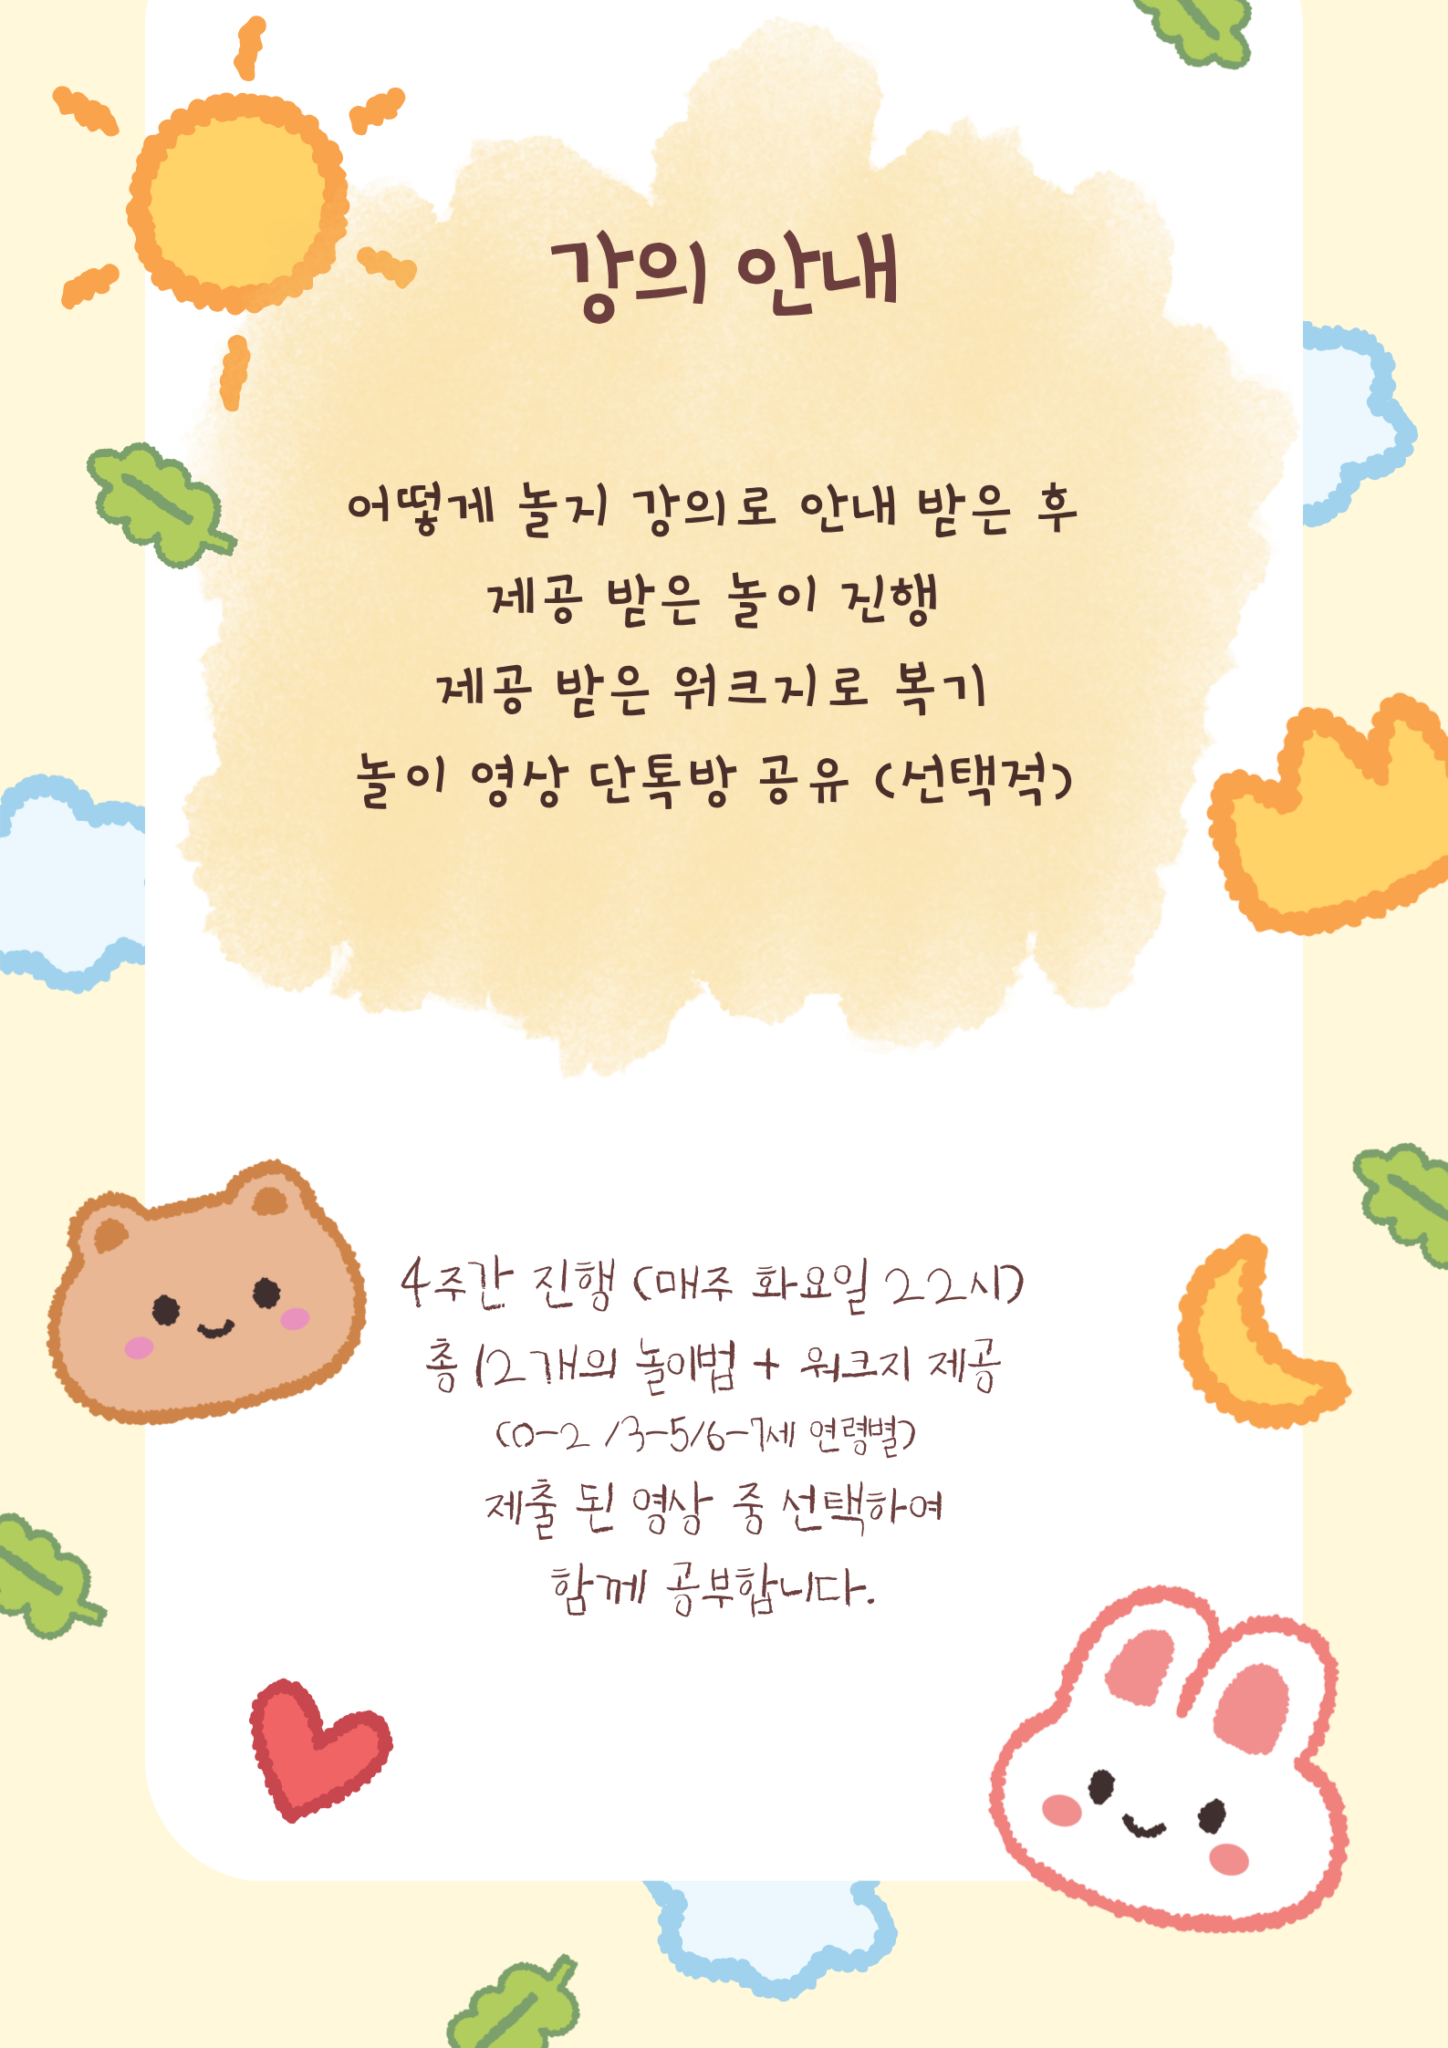 강의 안내
어떻게 놀지 강의로 안내 받은 후
제공 받은 놀이 진행
제공 받은 워크지로 복기
놀이 영상 단톡방 공유 (선택적)
4주간 진행 (매주 화요일 22시)
총 12개의 놀이법 + 워크지 제공
(0-2 /3-5/6-7세 연령별)
제출 된 영상 중 선택하여
함께 공부합니다.